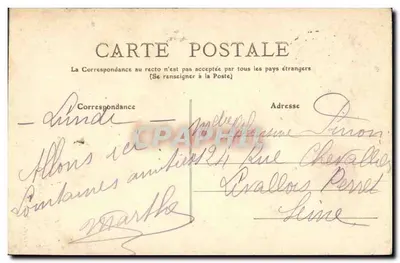 CARTE POSTALE
La Correspondance au recto n'est pas acceptée par tous les pays étrangers
(Se renseigner à la Poste)
Correspondance
Adresse
- Lundi -
Allons ici
Lointaines amitiés
Marthe
Dinon
124 Rue Chevallier
Levallois Perret
Seine